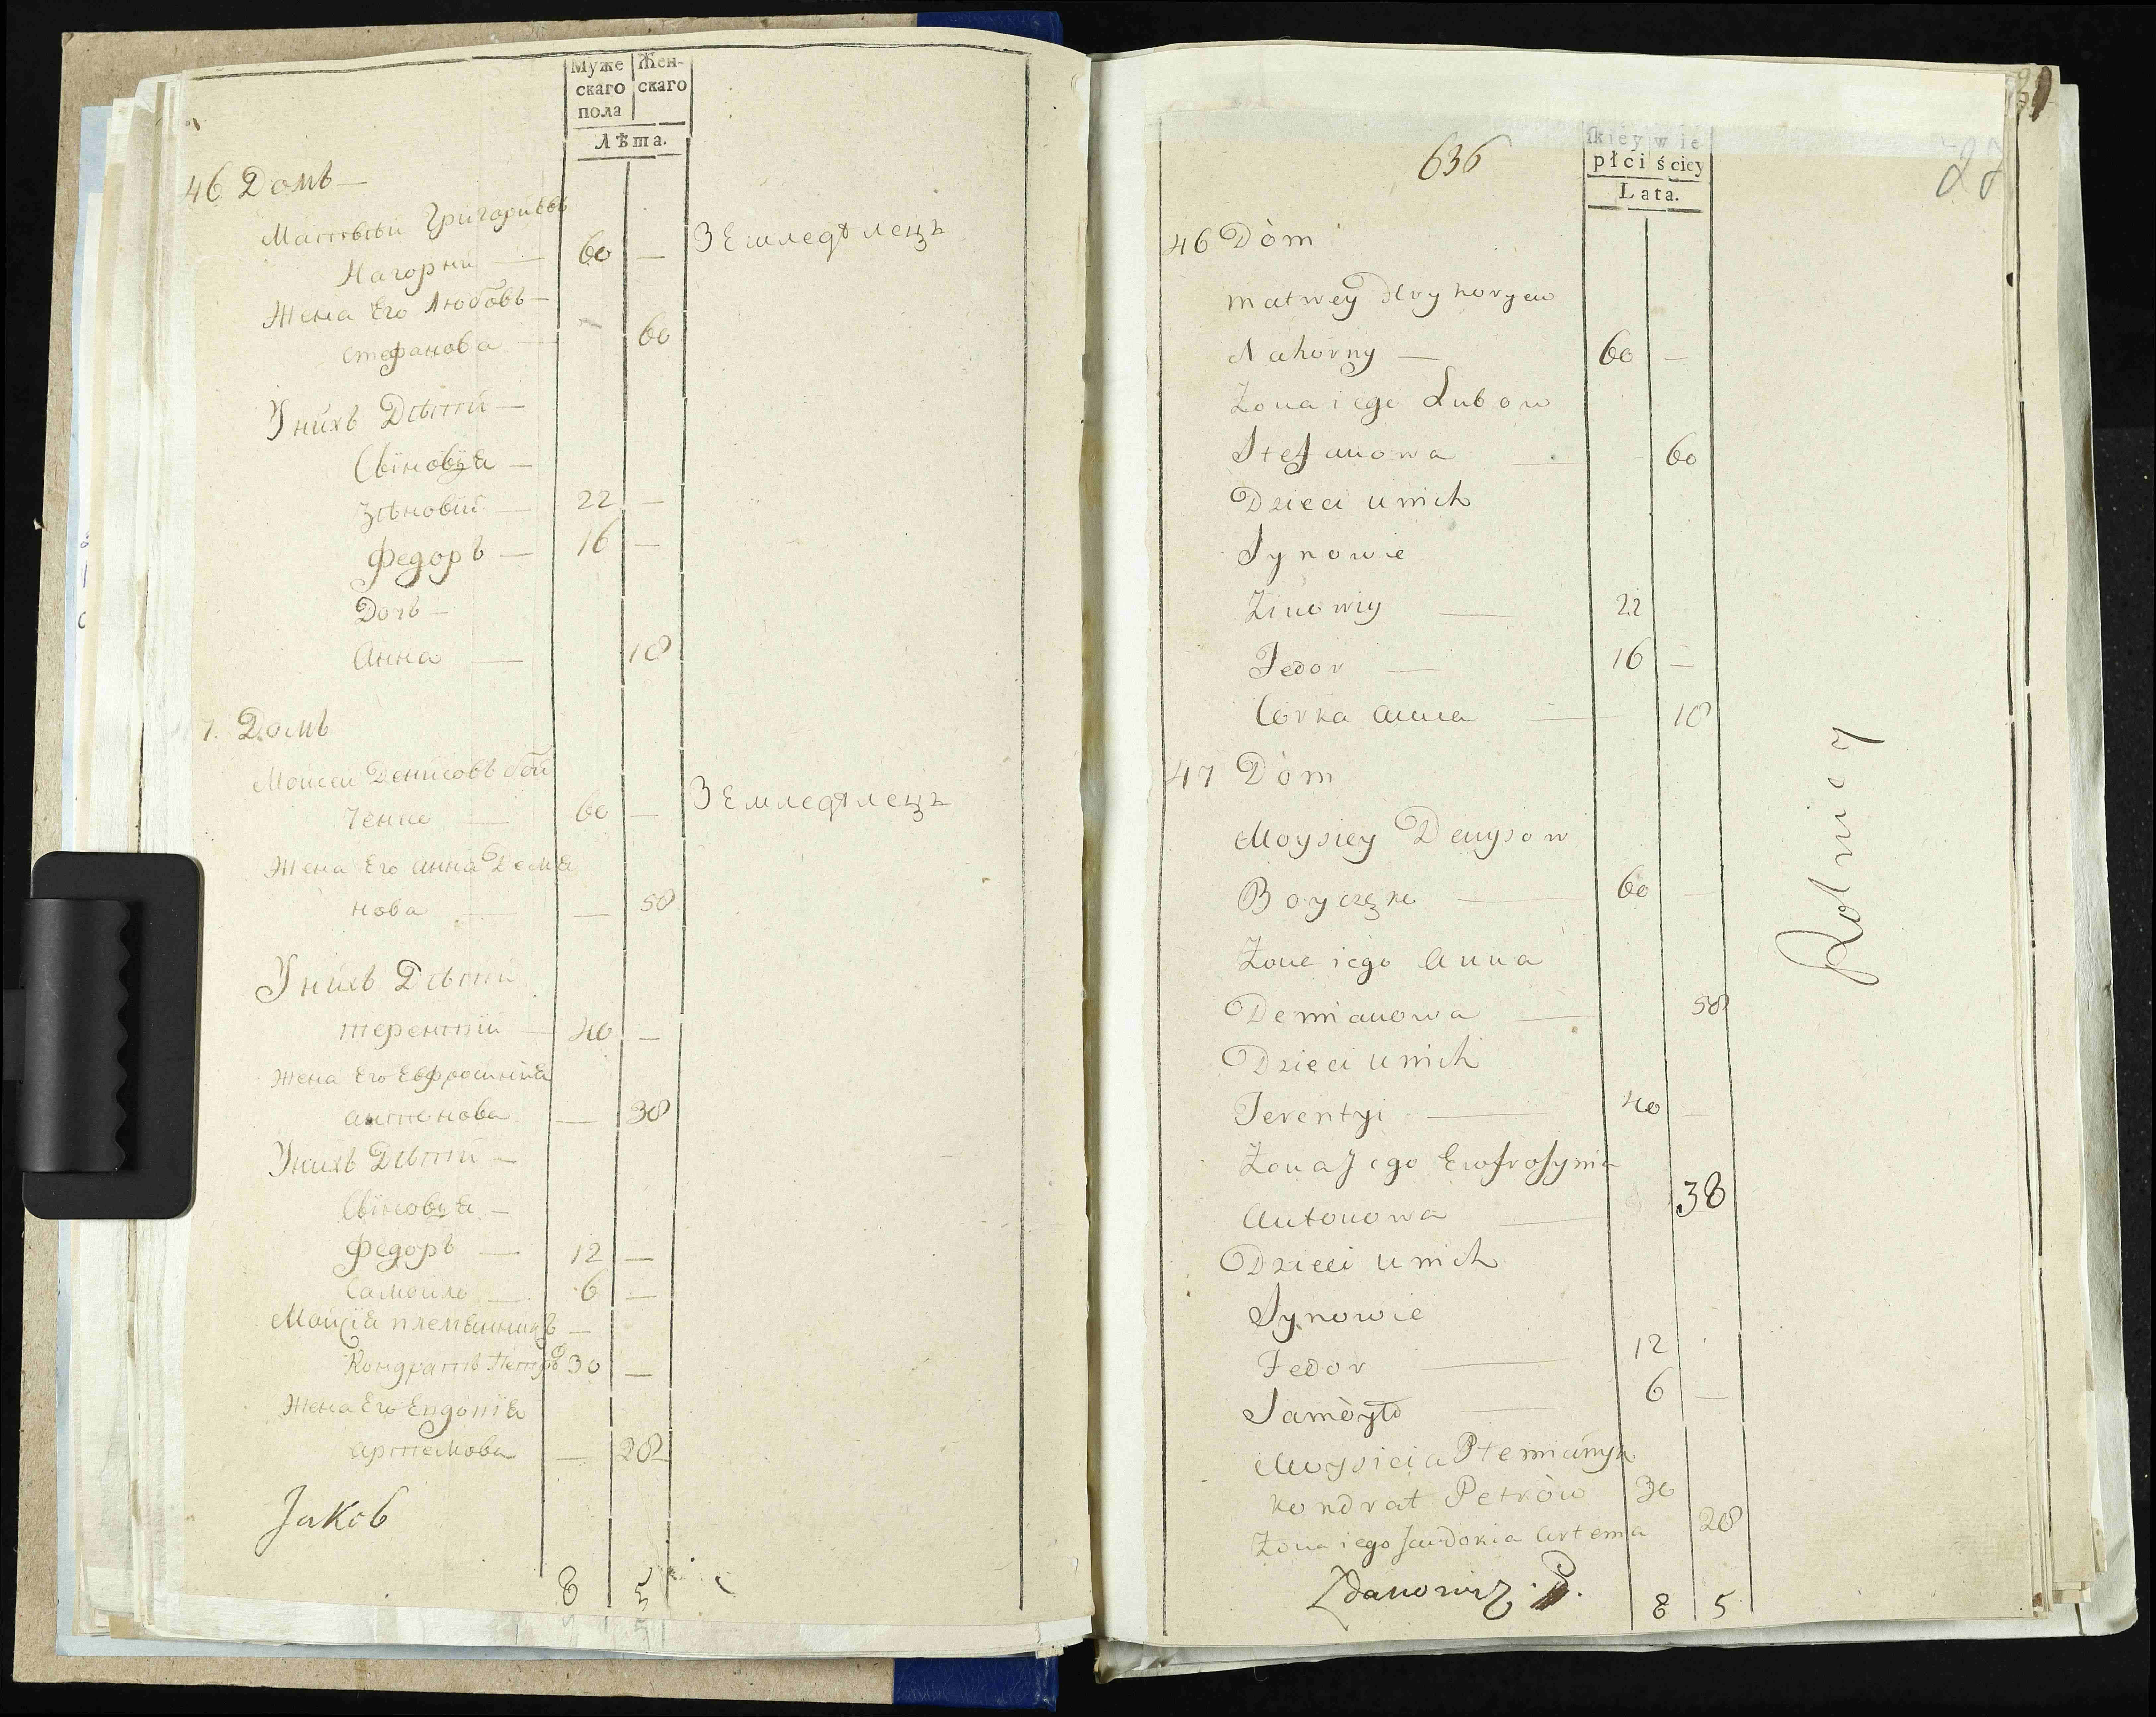 Муже Жен-
скаго скаго
пола
Лѣта.
46 Домъ —
Матвѣй Григориевъ
Нагорни — 60 — Земледѣлецъ
Жена Его Любовь —
Стефанова — 60
У нихъ Дѣти —
Синовѣя —
Зѣновий — 22 —
Федоръ — 16 —
Дочь —
Анна — 18
7. Домъ
Моисеи Денисовъ Бой
ченко — 60 — Земледѣлецъ
Жена Его Анна Демя
нова — — 58
У нихъ Дѣти
Терентий — 40 —
Жена Его Евфросиния
Антонова — 38
У нихъ Дѣти —
Синовея —
Федоръ — 12 —
Самоило — 6 —
Мойсія племянникъ —
Кондратъ Петровъ 30 —
Жена Его Евдокия
Артемова — 28
Jakob
8 5
636
skiey wie
płci ściey
Lata.
46 Dòm
Matwey Hryhoryew
Nahorny — 60 —
Żona iego Lubow
Stefanowa — 60
Dzieci u nich
Synowie
Zinowiy — 22
Fedor — 16 —
Corka Anna — 18
47 Dòm
Moysiey Denysow
Boyczęko — 60 —
Żona iego Anna
Demianowa — 58
Dzieci u nich
Terentyi — 40 —
Żona Jego Ewfrosynia
Antonowa — 38
Dzieci u nich
Synowie
Fedor — 12
Samòyło — 6 —
Moysieia Plemiannyk
Kondrat Petròw 30
Żona iego Jewdokia Artema 28
Zdanowicz P.
8 5
Rolnicy